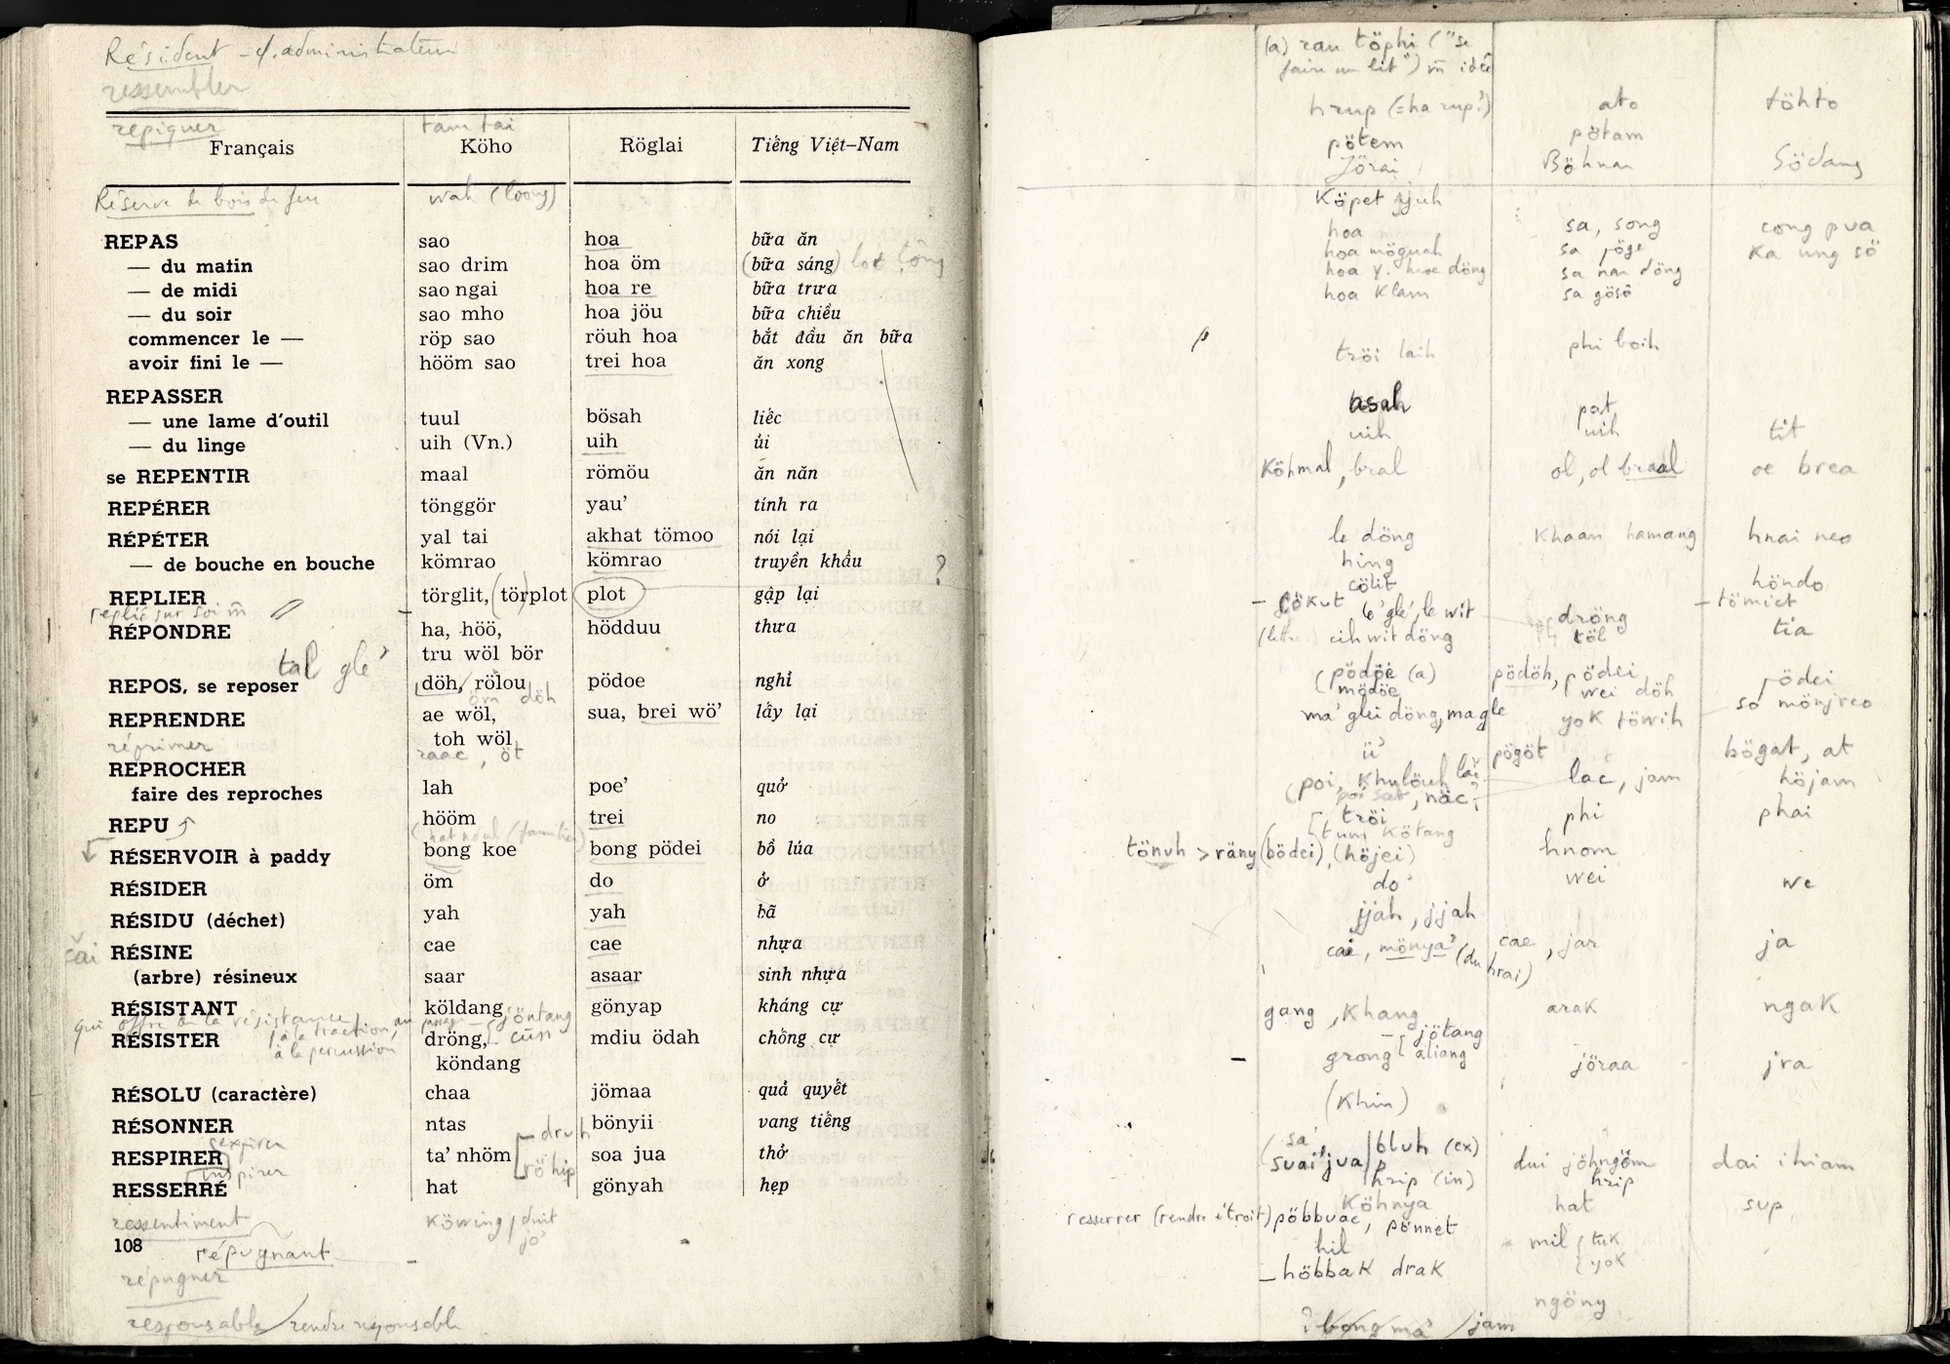 Résident - cf. administrateur
ressembler
repiquer tam tai
Français Köho Röglai Tiếng Việt-Nam
Réserve de bois de feu wah (loong)
REPAS sao hoa bữa ăn
— du matin sao drim hoa öm (bữa sáng)
— de midi sao ngai hoa re bữa trưa
— du soir sao mho hoa jöu bữa chiều
commencer le — röp sao röuh hoa bắt đầu ăn bữa
avoir fini le — hööm sao trei hoa ăn xong
REPASSER
— une lame d'outil tuul bösah liếc
— du linge uih (Vn.) uih ủi
se REPENTIR maal römöu ăn năn
REPÉRER tönggör yau' tính ra
RÉPÉTER yal tai akhat tömoo nói lại
— de bouche en bouche kömrao kömrao truyền khẩu ?
REPLIER törglit, (tör)plot plot gập lại
replié sur soi m̄
RÉPONDRE ha, höö, hödduu thưa
tru wöl bör
tal gle'
REPOS, se reposer döh, rölou pödoe nghỉ
öm döh
REPRENDRE ae wöl, sua, brei wö' lấy lại
toh wöl
réprimer raac, öt
REPROCHER
faire des reproches lah poe' quở
REPU hööm trei no
RÉSERVOIR à paddy bong koe bong pödei bồ lúa
RÉSIDER öm do ở
RÉSIDU (déchet) yah yah bã
RÉSINE cae cae nhựa
căi
(arbre) résineux saar asaar sinh nhựa
RÉSISTANT köldang gönyap kháng cự
qui offre de la résistance
à la traction, au passage jöntang
à la percussion
RÉSISTER dröng, cün mdiu ödah chống cự
köndang
RÉSOLU (caractère) chaa jömaa quả quyết
RÉSONNER ntas bönyii vang tiếng
expirer druh
RESPIRER ta' nhöm soa jua thở
inspirer röhip
RESSERRÉ hat gönyah hẹp
ressentiment köwing / duit
jö'
108
répugnant
répugner
responsable / rendre responsable
(a) rau töphi ("se
faire un lit") m̄ idée
hrup (= ha rup?) ato töhto
pötem pötam
Jörai Böhnan Södang
Köpet ijuh
hoa sa, song cong pua
hoa möguah sa jöge Ka ung sö
hoa Klam sa gösö
tröi laih phi boih
asah pat
uih uih tit
Köhmal, bral ol, ol braal oe brea
le döng Khaan hamang hnai neo
hing
cölit höndo
- çökut le' gle', le wit dröng - tömiet
cih wit döng töl tia
(pödöe (a) pödöh, pödei pödei
mödöe wei döh
ma' glei döng, ma gle yok töwih so mönjreo
ü' pögöt bögat, at
(poi, Khulöuh lăi lac, jam höjam
năc
tröi phi phai
tum kötang
tönuh > räny (bödei), (höjei) hnom
do' wei we
jjah, jjah
cai, mönya' (du hrai) cae, jar ja
gang, Khang arak ngaK
- jötang
grong aliang jöraa jra
(Khin)
(sa'
suai' jua bluh (ex) dui jöhngöm dai ihiam
hrip (in) hrip
Köhnya hat sup
resserrer (rendre étroit) pöbbuac, pönnet
hil mil tuk
jok
- höbbaK draK
ngöny
? bong ma' / jam